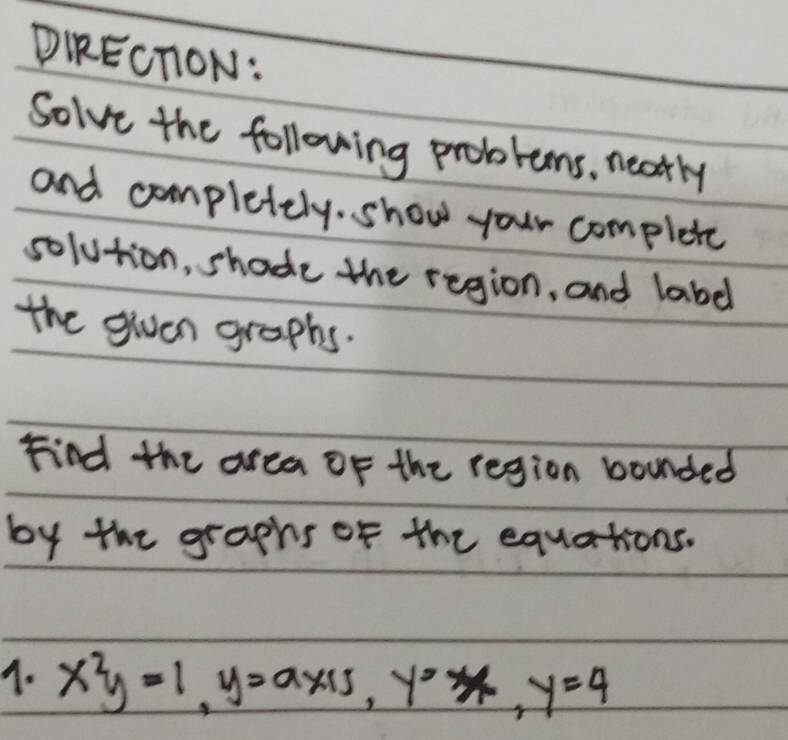 DIRECTION:
Solve the following problems, neatly
and completely. Show your complete
solution, shade the region, and label
the given graphs.
Find the area of the region bounded
by the graphs of the equations.
1. x²y = 1, y = axis, y = , y = 4